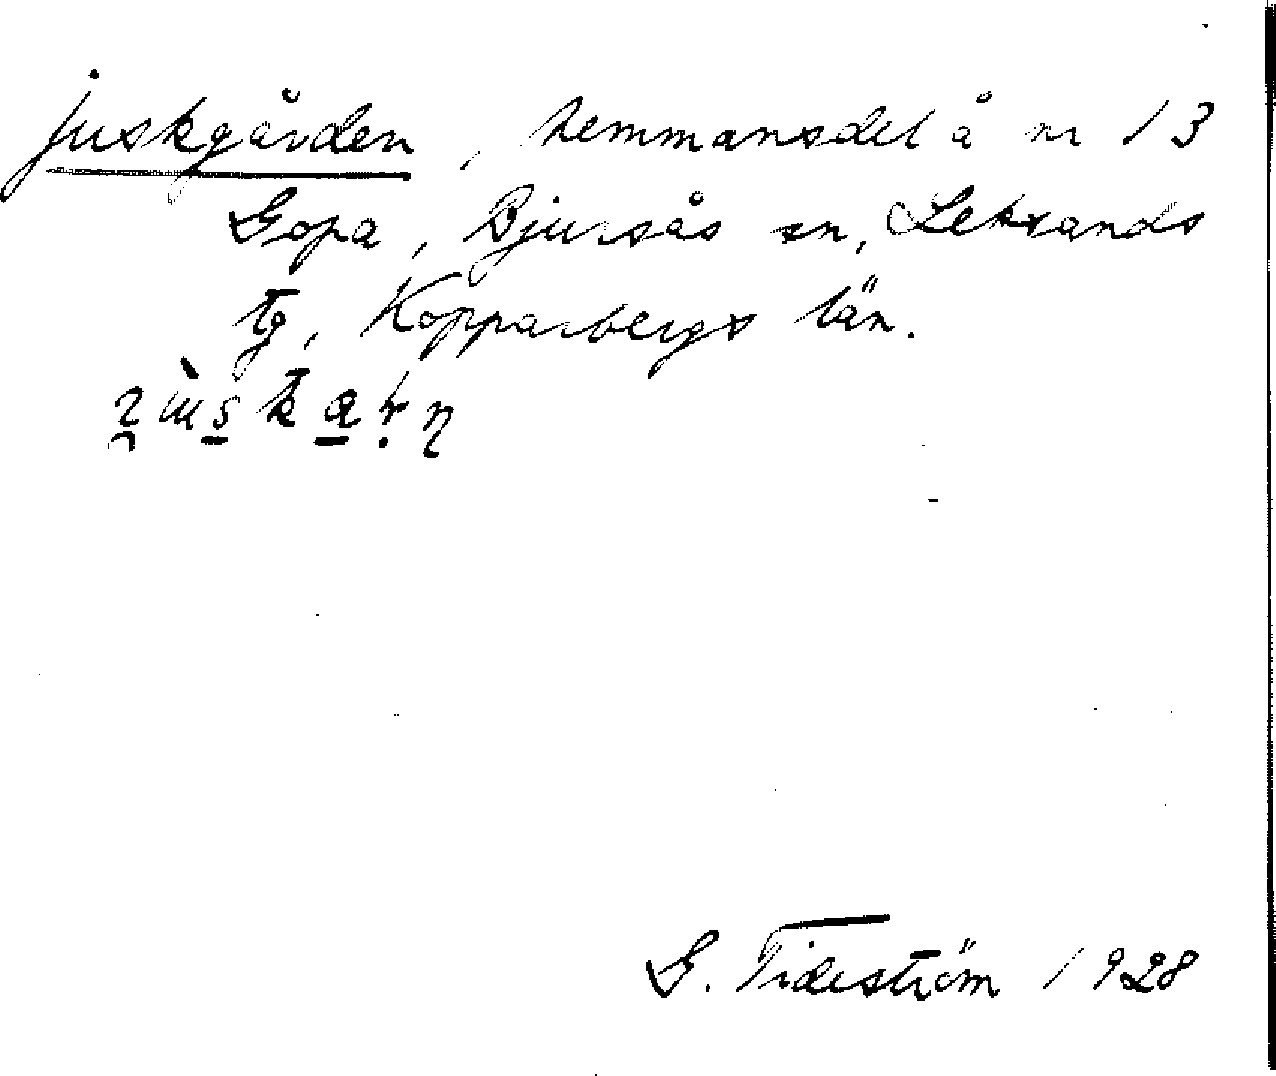 Juskgården, hemmansdel å nr 13
Gopa, Bjursås sn, Leksands
tg, Kopparbergs län.
G. Tideström 1928